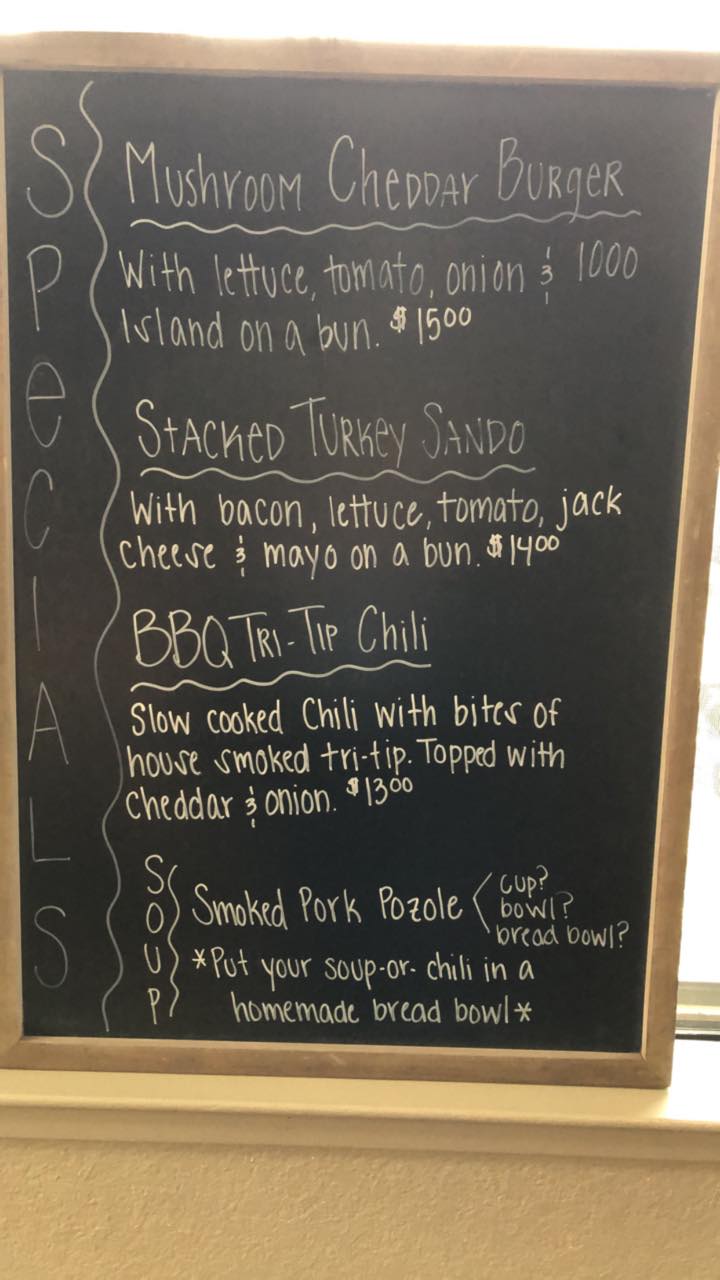 SPeCIALS
MUSHrOOM CHeDDAr BURgeR
With lettuce, tomato, onion & 1000
Island on a bun. $1500
STACKED TURKeY SANDO
With bacon, lettuce, tomato, jack
cheese & mayo on a bun. $1400
BBQ TRI-TIP Chili
Slow cooked Chili with bites of
house smoked tri-tip. Topped with
Cheddar & onion. $1300
SOUP
Smoked Pork Pozole < cup?
bowl?
bread bowl?
*Put your soup-or-chili in a
homemade bread bowl*